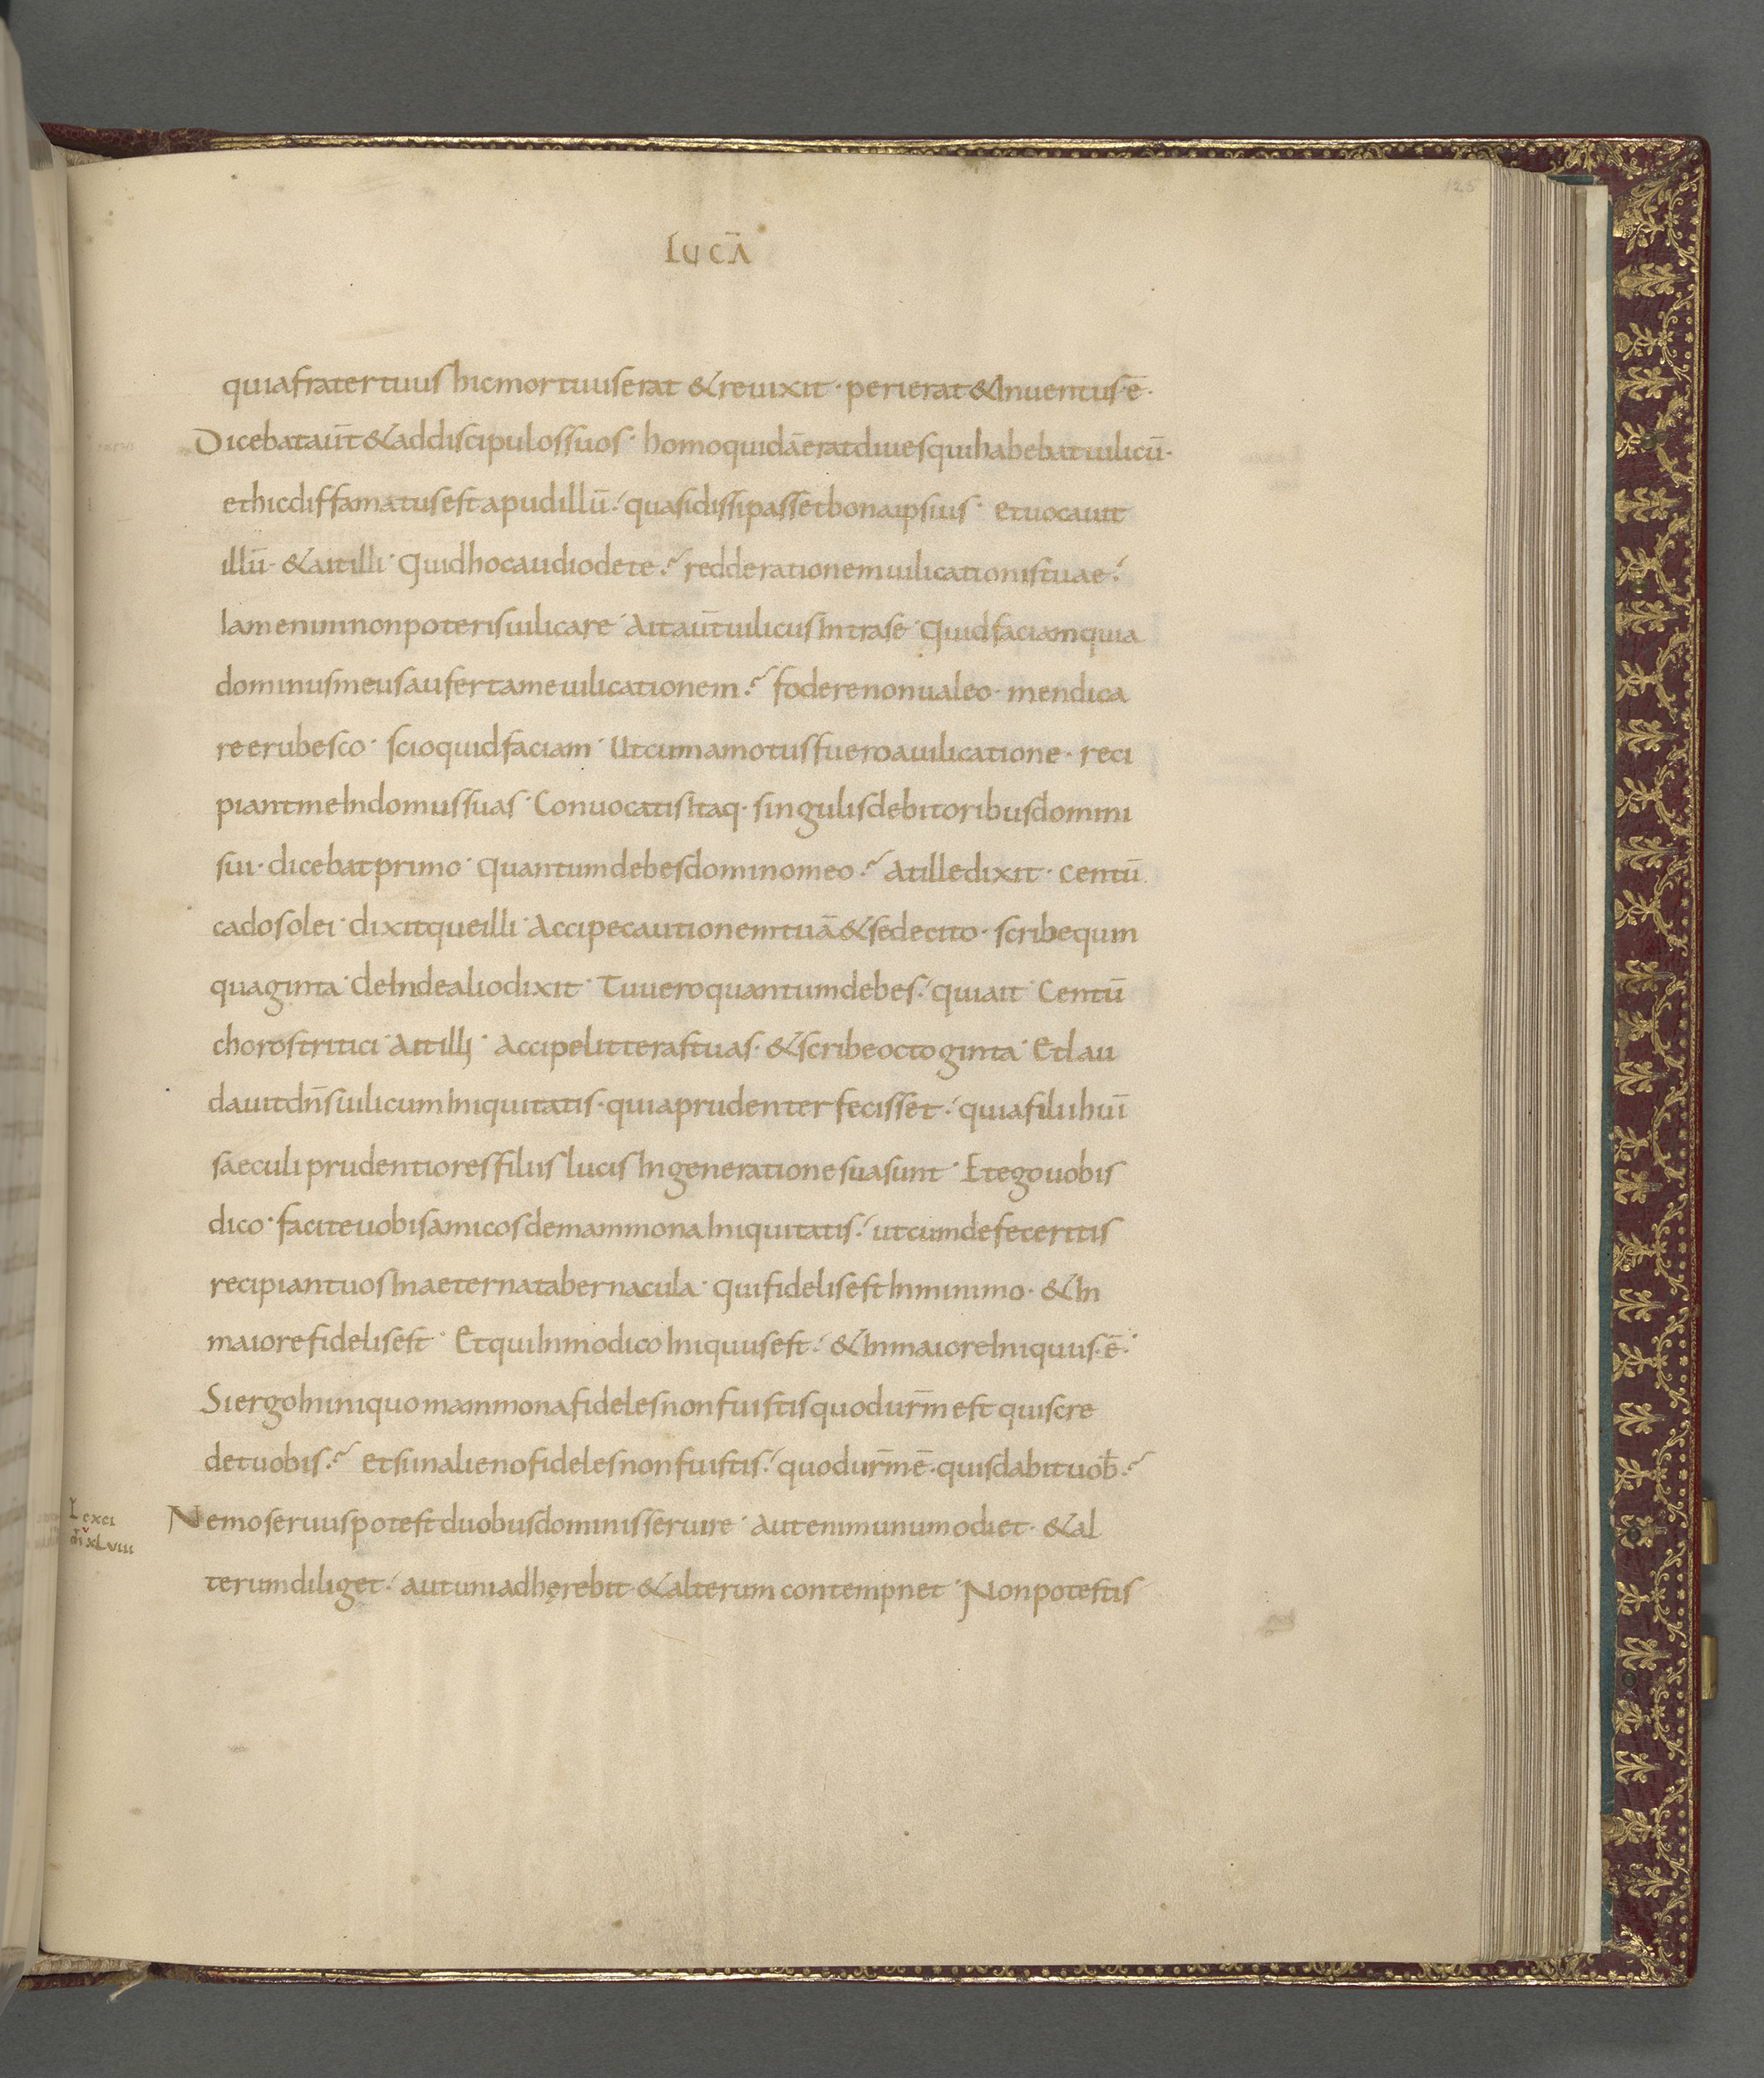 125
LUCĀ
quia frater tuus hic mortuus erat & reuixit · perierat & Inuentus · ē ·
Dicebat aūt & ad discipulos suos · homo quidā erat diues qui habebat uilicū ·
et hic diffamatus est apud illū · quasi dissipasset bona ipsius · et uocauit
illū · & ait illi · Quid hoc audio de te ? redde rationem uilicationis tuae
Iam enim non poteris uilicare · Ait aūt uilicus Intra se · Quid faciam quia
dominus meus aufert a me uilicationem ? fodere non ualeo · mendica
re erubesco · scio quid faciam · Ut cum amotus fuero a uilicatione · reci
piant me In domus suas · Conuocatis Itaq · singulis debitoribus domini
sui · dicebat primo · Quantum debes domino meo ? At ille dixit · Centū
cados olei · dixitque illi · Accipe cautionem tuā & sede cito · scribe quin
quaginta · deInde alio dixit · Tu uero quantum debes · qui ait · Centū
choros tritici · Ait illi · Accipe litteras tuas · & scribe octoginta · Et lau
dauit dn̄s uilicum Iniquitatis · quia prudenter fecisset · quia filii huī
saeculi prudentiores filiis lucis In generatione sua sunt · Et ego uobis
dico · facite uobis amicos de mammona Iniquitatis · ut cum defeceritis
recipiant uos In aeterna tabernacula · qui fidelis est In minimo · & In
maiore fidelis est · Et qui In modico Iniquus est · & In maiore Iniquus · ē ·
Si ergo In iniquo mammona fideles non fuistis quod ur̄m est quis cre
det uobis ? et si in alieno fideles non fuistis · quod ur̄m ē · quis dabit uob̄ ?
L cxci
m̄ xLviii
Nemo seruus potest duobus dominis seruire · aut enim unum odiet · & al
terum diliget · aut uni adhęrebit & alterum contempnet · Non potestis